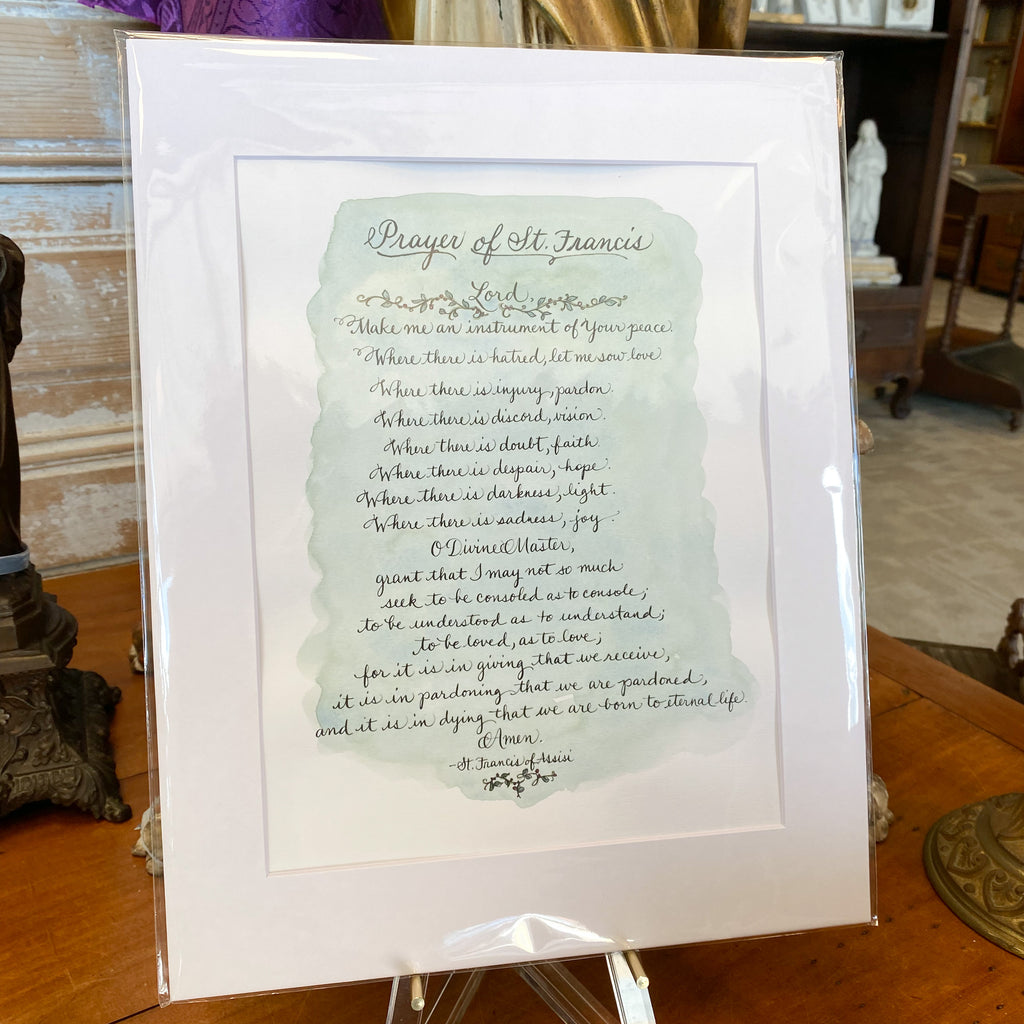 Prayer of St. Francis
Lord,
Make me an instrument of Your peace.
Where there is hatred, let me sow love.
Where there is injury, pardon.
Where there is discord, vision.
Where there is doubt, faith.
Where there is despair, hope.
Where there is darkness, light.
Where there is sadness, joy.
O Divine Master,
grant that I may not so much
seek to be consoled as to console;
to be understood as to understand;
to be loved, as to love;
for it is in giving that we receive,
it is in pardoning that we are pardoned,
and it is in dying that we are born to eternal life.
Amen.
-St. Francis of Assisi